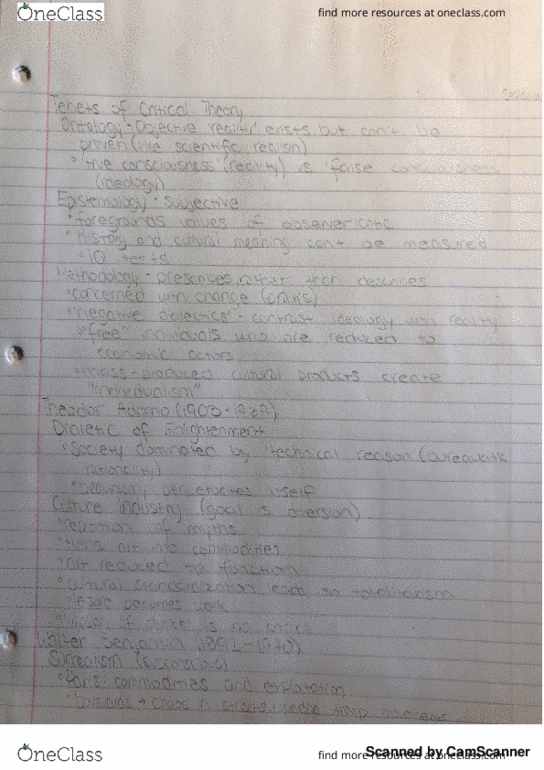 OneClass
find more resources at oneclass.com
Tenets of Critical Theory
Ontology - Objective 'reality' exists but can't be
proven (like scientific realism)
"true consciousness" (reality) vs. 'false consciousness'
(ideology)
Epistemology - Subjective
foregrounds values of observer/critic
History and cultural meaning can't be measured
IQ tests
Methodology - prescribes rather than describes
concerned with change (praxis)
"negative dialectics" - contrast ideology with reality
"free" individuals who are reduced to
economic actors
mass-produced cultural products create
"individualism"
Theodor Adorno (1903-1969)
Dialetic of Enlightenment
Society dominated by 'technical reason (bureaucratic
rationality)
itself
Culture Industry (goal is diversion)
repetition of myths
turns art into commodities
art reduced to function
cultural standardization leads to totalitarianism
leisure becomes work
illusion of choice is no choice
Walter Benjamin (1892-1940)
Surrealism
Paris: commodities and
OneClass
find more resources at oneclass.com
Scanned by CamScanner